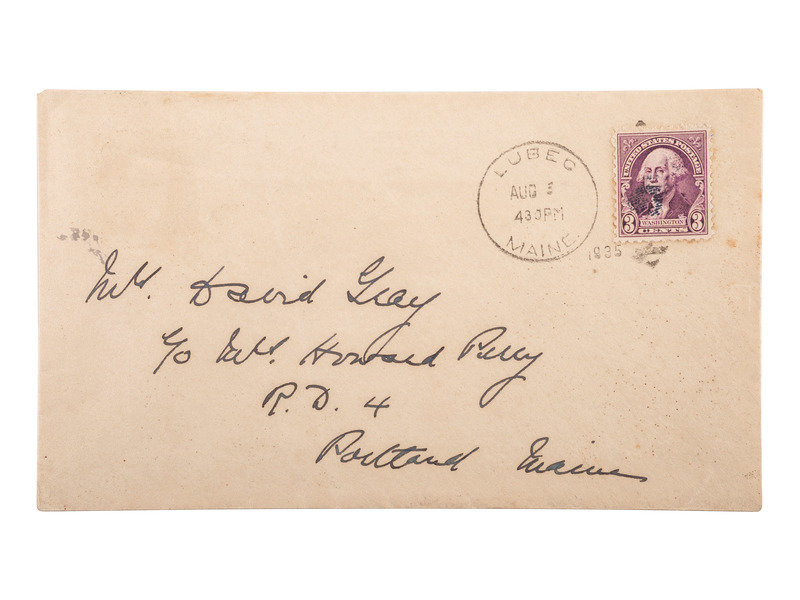 LUBEC
AUG 5
430 PM
MAINE.
1935
UNITED STATES POSTAGE
WASHINGTON
3 CENTS 3
Mrs. David Gray
c/o Mrs. Howard Perry
R. D. 4
Portland Maine